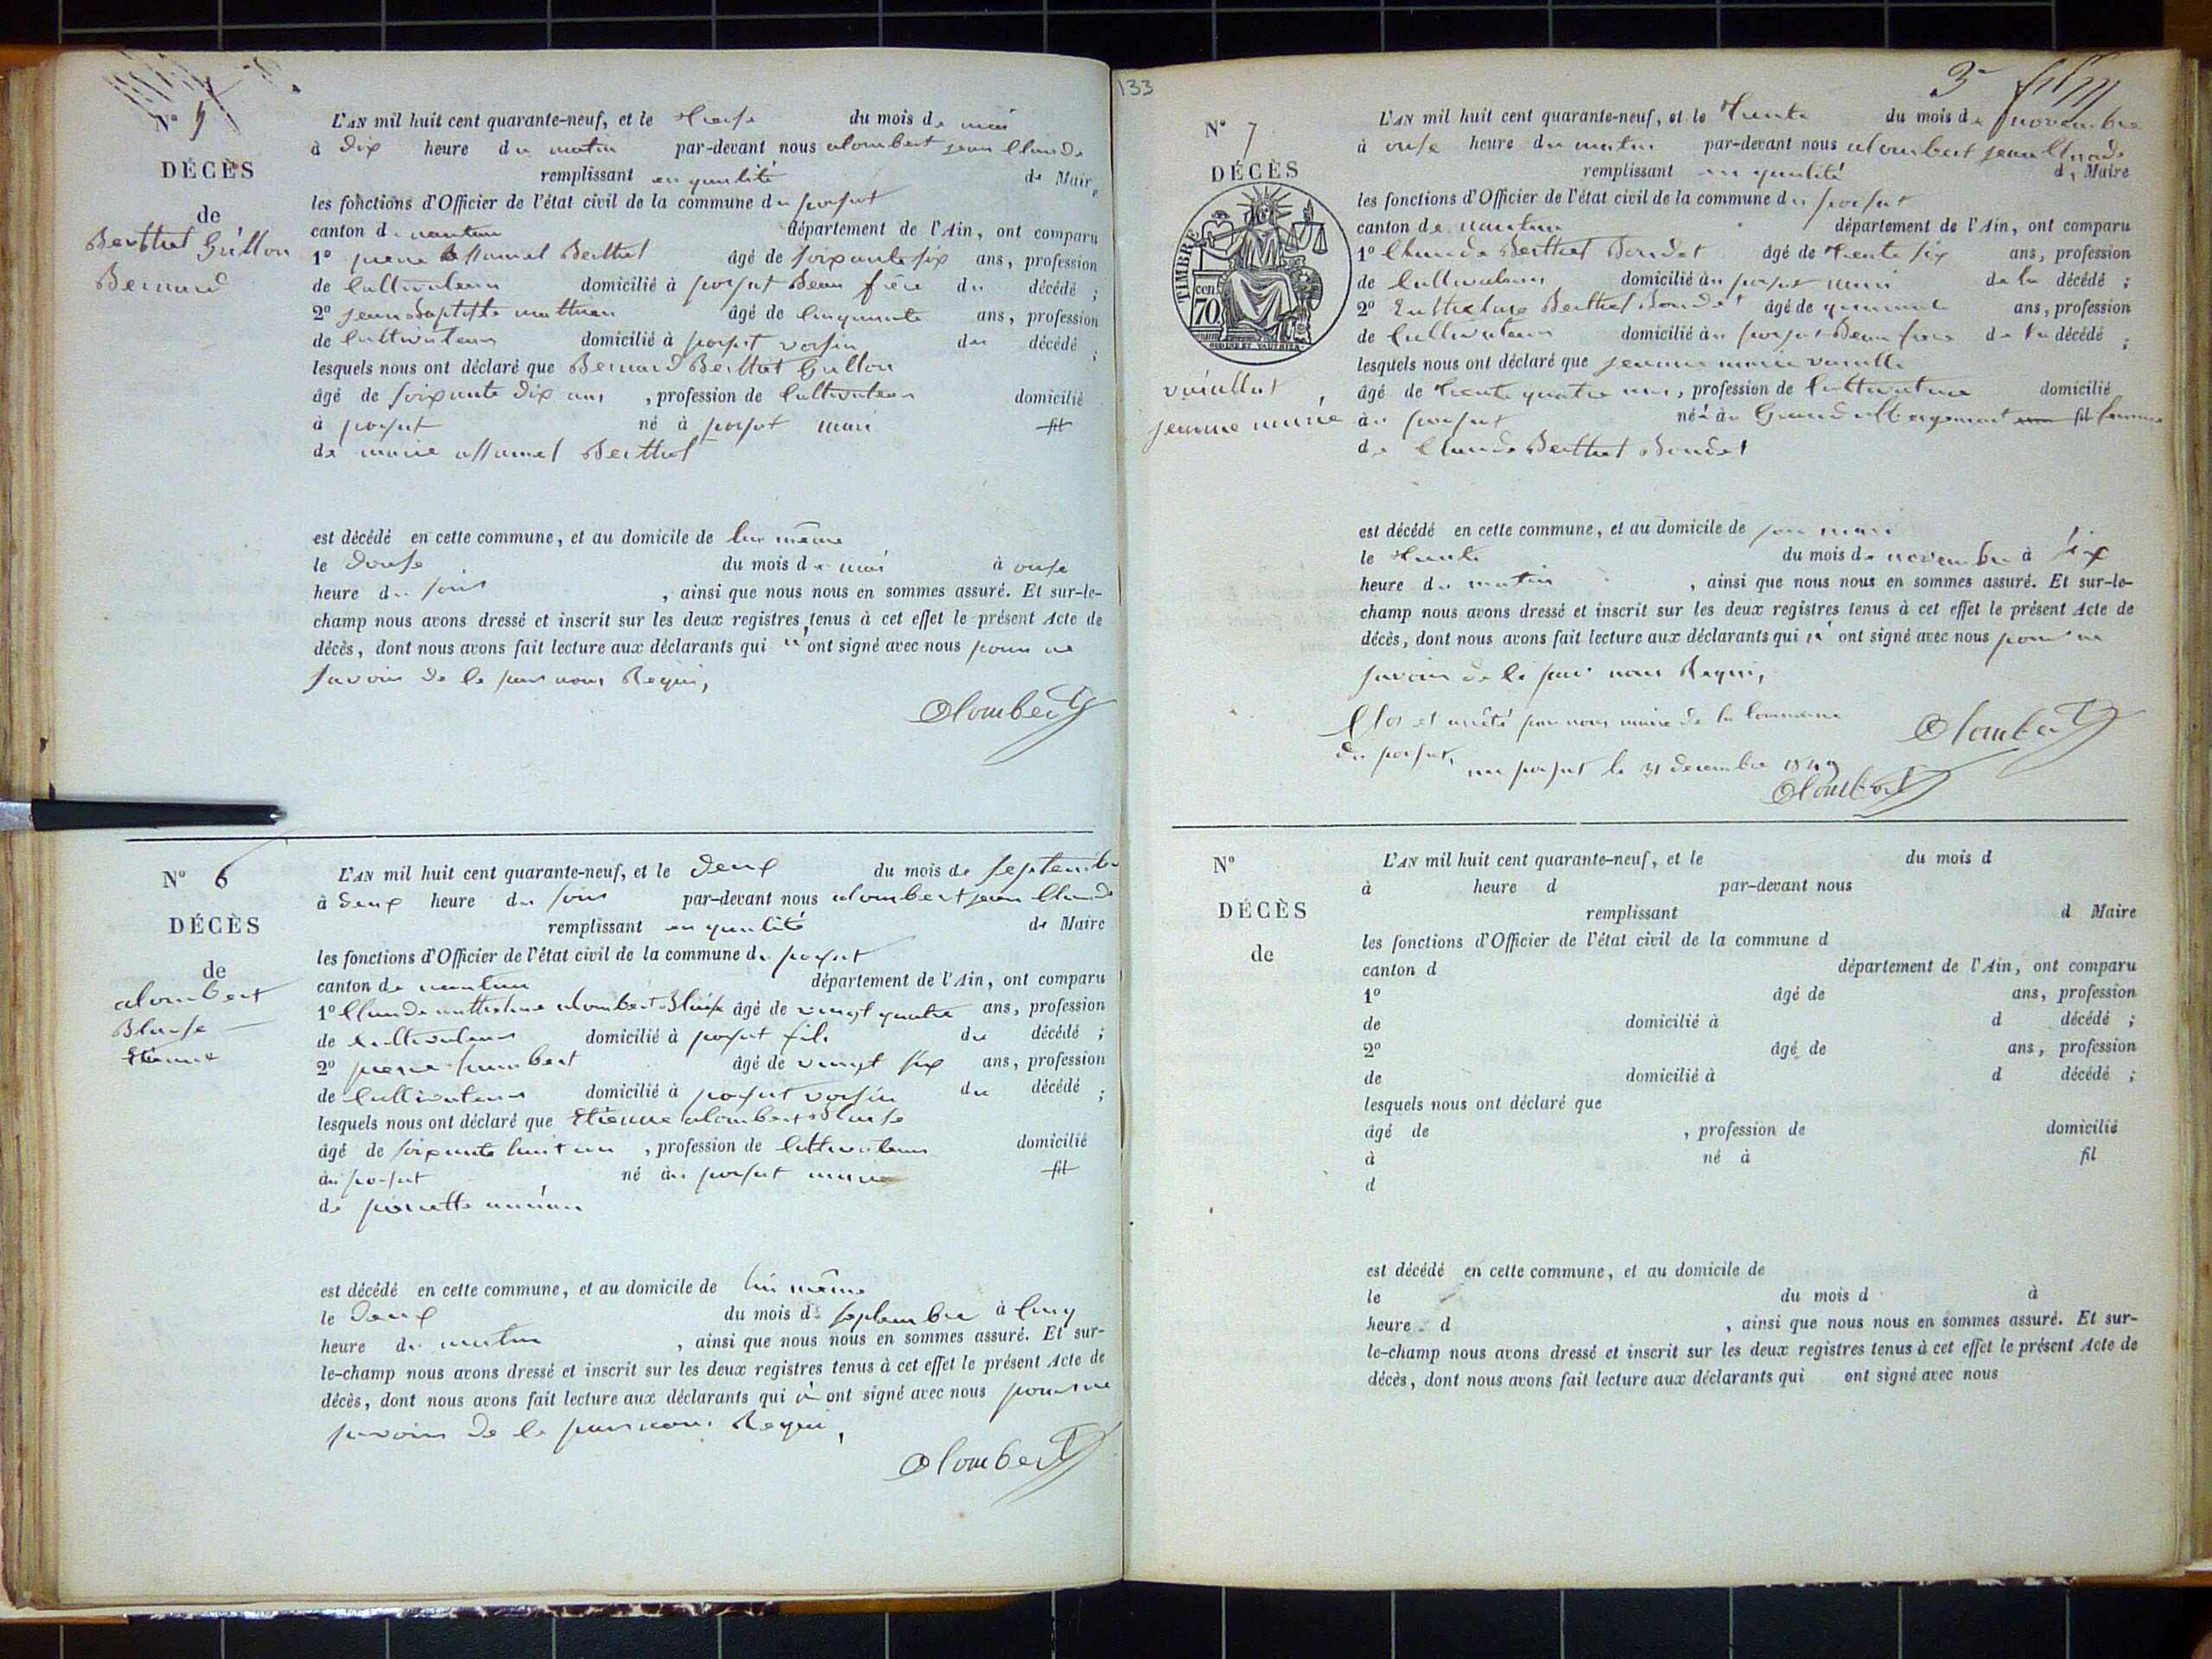 N° 5
DÉCÈS
de
Berthet Grillon
Bernard
L'AN mil huit cent quarante-neuf, et le treise du mois de mai
à dix heure du matin par-devant nous alombert jean Claude
remplissant en qualité de Maire
les fonctions d'Officier de l'état civil de la commune du poisat
canton de nantua département de l'Ain, ont comparu
1° pierre Berthet âgé de soixante six ans, profession
de Cultivateur domicilié à poisat Beau frère du décédé ;
2° jean Baptiste âgé de Cinquante ans, profession
de Cultivateur domicilié à poisat voisin du décédé ;
lesquels nous ont déclaré que Bernard Berthet Grillon
âgé de soixante dix ans , profession de Cultivateur domicilié
à poisat né à poisat mari fil
de marie Berthet
est décédé en cette commune, et au domicile de lui même
le douse du mois de mai à onse
heure du soir , ainsi que nous nous en sommes assuré. Et sur-le-
champ nous avons dressé et inscrit sur les deux registres tenus à cet effet le présent Acte de
décès, dont nous avons fait lecture aux déclarants qui n' ont signé avec nous pour ne
savoir de ce par nous Requi,
Alombert
N° 6
DÉCÈS
de
alombert
Blaise
Etienne
L'AN mil huit cent quarante-neuf, et le deux du mois de septembre
à deux heure du soir par-devant nous alombert jean Claude
remplissant en qualité de Maire
les fonctions d'Officier de l'état civil de la commune du poisat
canton de nantua département de l'Ain, ont comparu
1° Claude anthelme alombert Blaise âgé de vingt quatre ans, profession
de Cultivateur domicilié à poisat fils du décédé ;
2° pierre humbert âgé de vingt six ans, profession
de Cultivateur domicilié à poisat voisin du décédé ;
lesquels nous ont déclaré que Etienne alombert Blaise
âgé de soixante huit ans , profession de Cultivateur domicilié
au poisat né au poisat mari fil
de pierrette
est décédé en cette commune, et au domicile de lui même
le deux du mois de septembre à Cinq
heure du matin , ainsi que nous nous en sommes assuré. Et sur-
le-champ nous avons dressé et inscrit sur les deux registres tenus à cet effet le présent Acte de
décès, dont nous avons fait lecture aux déclarants qui n' ont signé avec nous pour ne
savoir de ce par nous Requi,
Alombert
133
3e film
N° 7
DÉCÈS
TIMBRE
cen.
70
vaillat
jeanne marie
L'AN mil huit cent quarante-neuf, et le trente du mois de novembre
à onse heure du matin par-devant nous alombert jean Claude
remplissant en qualité de Maire
les fonctions d'Officier de l'état civil de la commune du poisat
canton de nantua département de l'Ain, ont comparu
1° Claude Berthet Bondet âgé de trente six ans, profession
de Cultivateur domicilié au poisat mari de la décédé ;
2° Berthet Bondet âgé de quarante ans, profession
de Cultivateur domicilié au poisat Beau frère de la décédé ;
lesquels nous ont déclaré que jeanne marie
âgé de trente quatre ans, profession de Cultivatrice domicilié
au poisat née au Grand abergement fil femme
de Claude Berthet Bondet
est décédé en cette commune, et au domicile de son mari
le trente du mois de novembre à six
heure du matin , ainsi que nous nous en sommes assuré. Et sur-le-
champ nous avons dressé et inscrit sur les deux registres tenus à cet effet le présent Acte de
décès, dont nous avons fait lecture aux déclarants qui n' ont signé avec nous pour ne
savoir de ce par nous Requi,
Clos et arrêté par nous maire de la Commune
du poisat, au poisat le 31 decembre 1849
Alombert
Alombert
N°
DÉCÈS
de
L'AN mil huit cent quarante-neuf, et le du mois d
à heure d par-devant nous
remplissant d Maire
les fonctions d'Officier de l'état civil de la commune d
canton d département de l'Ain, ont comparu
1° âgé de ans, profession
de domicilié à d décédé ;
2° âgé de ans, profession
de domicilié à d décédé ;
lesquels nous ont déclaré que
âgé de , profession de domicilié
à né à fil
d
est décédé en cette commune, et au domicile de
le du mois d à
heure d , ainsi que nous nous en sommes assuré. Et sur-
le-champ nous avons dressé et inscrit sur les deux registres tenus à cet effet le présent Acte de
décès, dont nous avons fait lecture aux déclarants qui ont signé avec nous